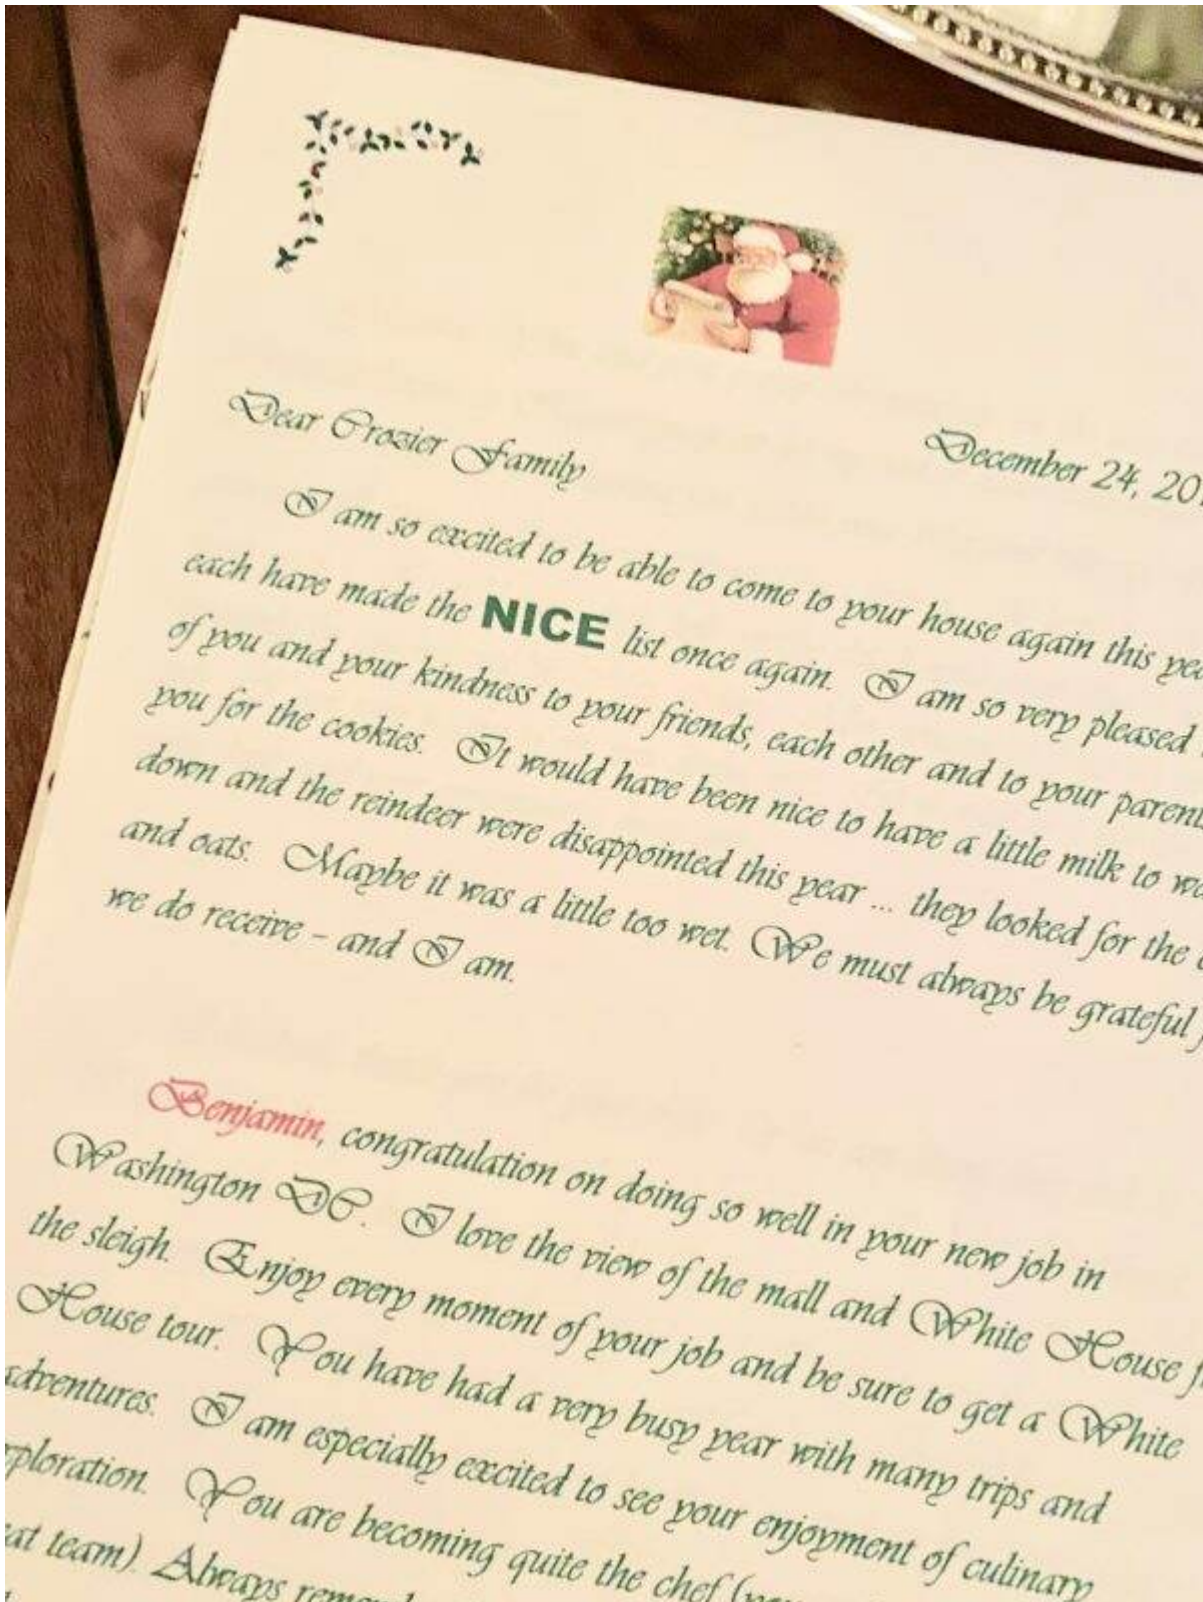 Dear Crozier Family
December 24,
I am so excited to be able to come to your house again this
each have made the NICE list once again. I am so very pleased
of you and your kindness to your friends, each other and to your
you for the cookies. It would have been nice to have a little milk to
down and the reindeer were disappointed this year ... they looked for the
and oats. Maybe it was a little too wet. We must always be grateful
we do receive – and I am.
Benjamin, congratulation on doing so well in your new job in
Washington DC. I love the view of the mall and White House
the sleigh. Enjoy every moment of your job and be sure to get a White
House tour. You have had a very busy year with many trips and
adventures. I am especially excited to see your enjoyment of culinary
You are becoming quite the chef
team). Always